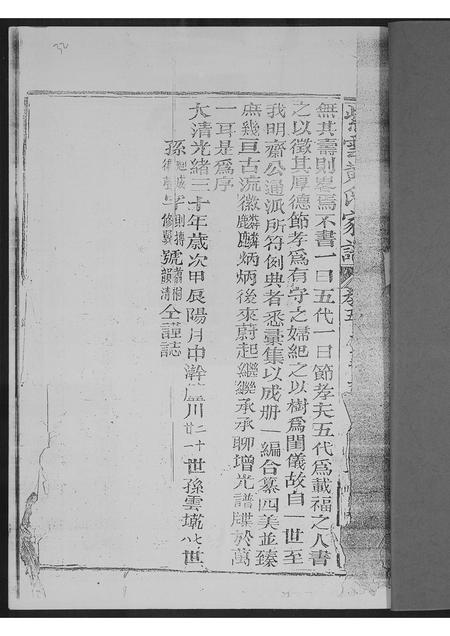 紫雲黃氏家譜 卷五
無其壽則畧焉不書一曰五代一曰節孝夫五代為載福之人書
之以徵其厚德節孝為有守之婦紀之以樹為閨儀故自一世至
我明齋公通派所符例典者悉彙集以成册一編合纂四美並臻
庶幾亘古流徽麟麟炳炳後來蔚起繼繼承承聊增光譜牒於萬
一耳是為序
大清光緒三十年歲次甲辰陽月中澣 川二十世孫雲 七世
廿一 八
孫 字 號 清仝謹誌